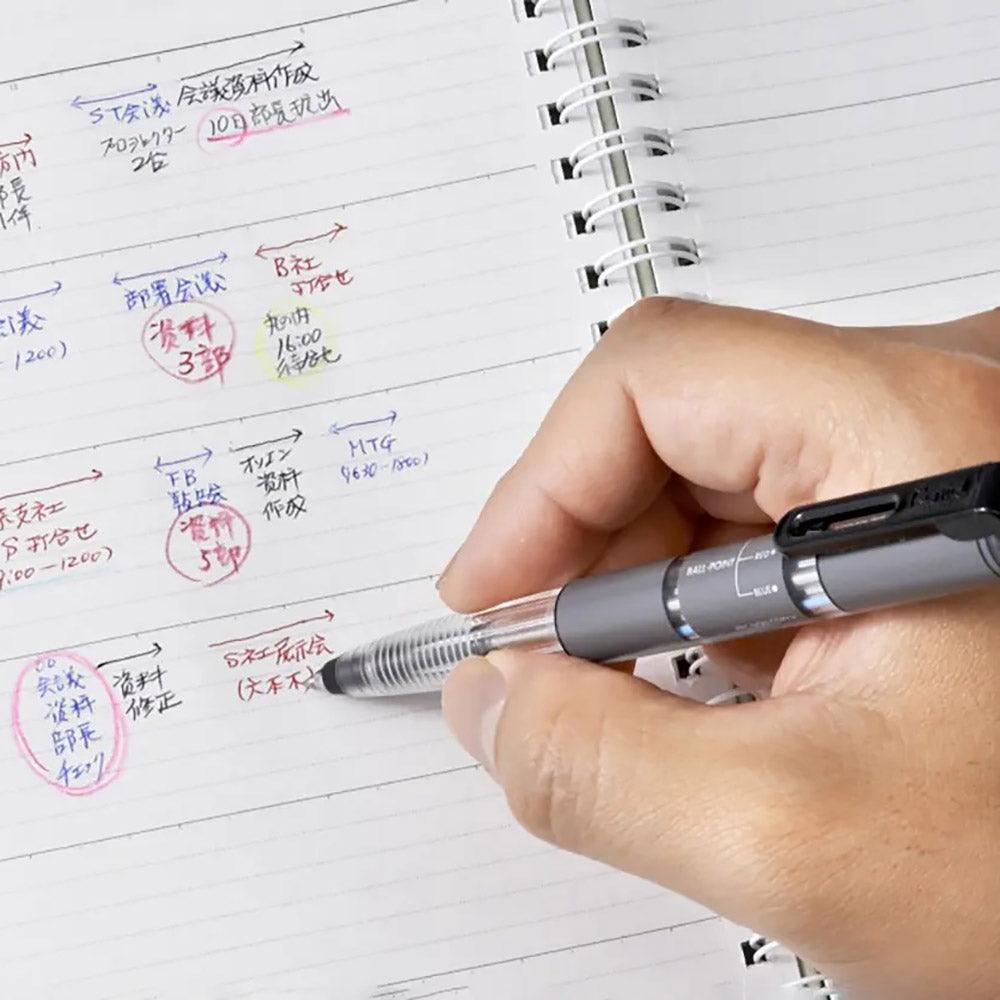 ST会議
会議資料作成
プロジェクター
2台
10日部長提出
訪内
部長
1件
部署会議
資料
3部
B社
打合せ
16:00
待合せ
会議
- 1200)
FB
資料
5部
オリエン
資料
作成
MTG
(1630-1800)
支社
打合せ
9:00-1200)
会議
資料
部長
チェック
資料
修正
S社展示会
(六本木)
BALL-POINT
RED
BLUE